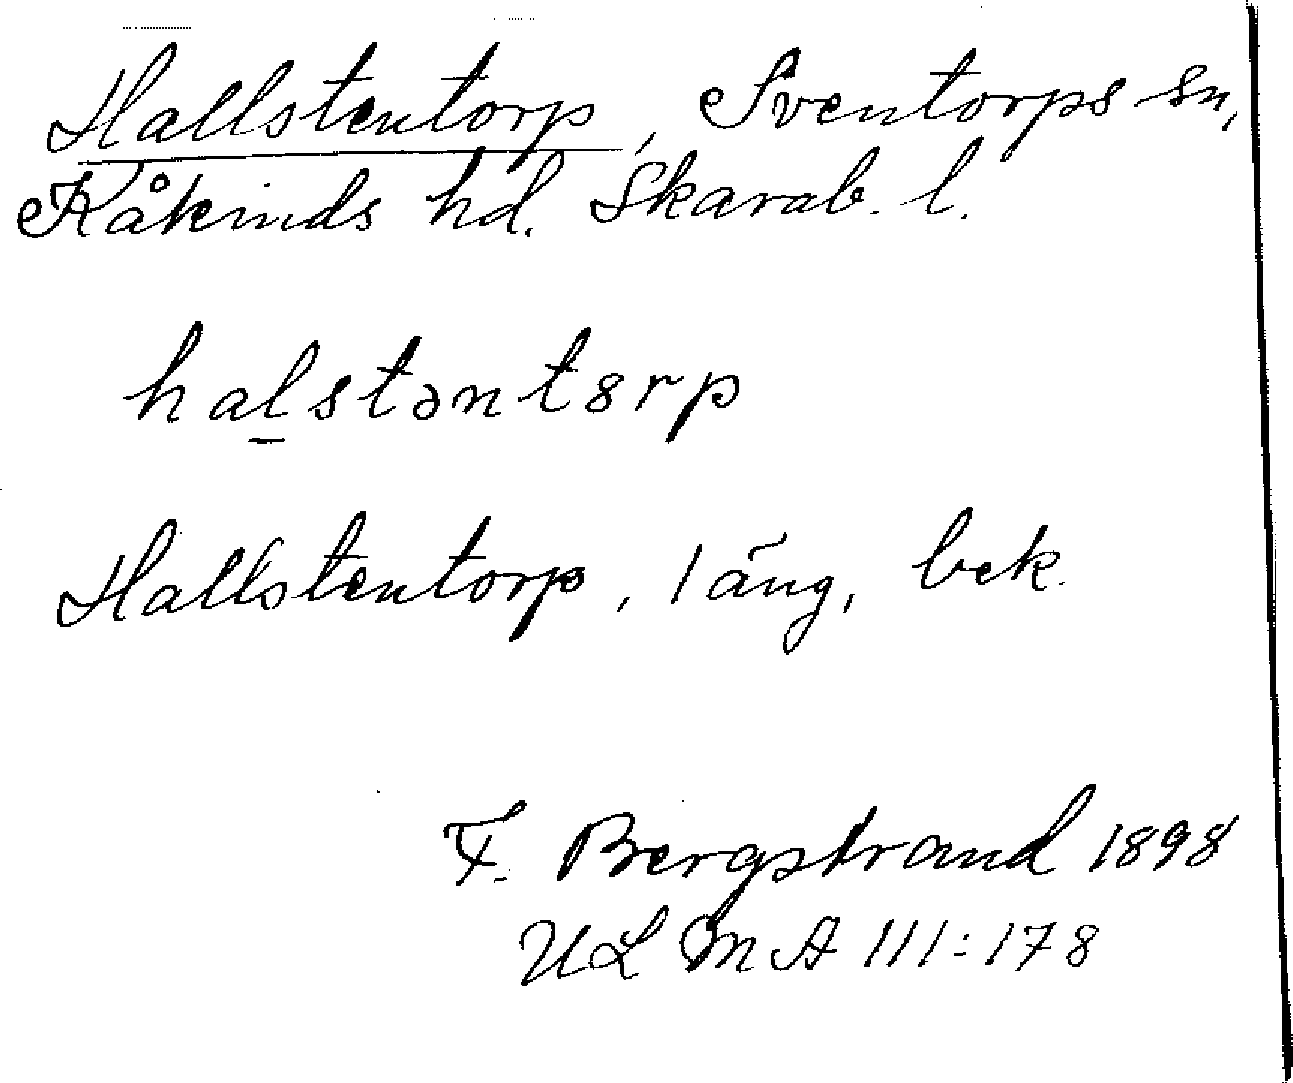 Hallstentorp, Sventorps sn,
Kåkinds hd. Skarab. l.
halstəntȣrp
Hallstentorp, 1 äng, bek.
F. Bergstrand 1898
ULMA 111:178